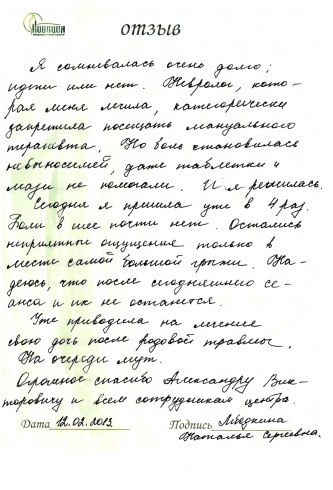 Ловаша
ОТЗЫВ
Я сомневалась очень долго;
идти или нет. Невролог, кото-
рая меня лечила, категорически
запретила посещать мануального
терапевта. Но боль становилась
невыносимей, даже таблетки и
мази не помогали. И я решилась.
Сегодня я пришла уже в 4 раз.
Боли в шее почти нет. Остались
неприятные ощущения только в
месте самой большой грыжи. На-
деюсь, что после сегодняшнего се-
анса и их не останется.
Уже приводила на лечение
свою дочь после родовой травмы.
На очереди муж.
Огромное спасибо Александру Вик-
торовичу и всем сотрудникам центра.
Дата 12.02.2013 Подпись Лебедкина
Наталья Сергеевна.